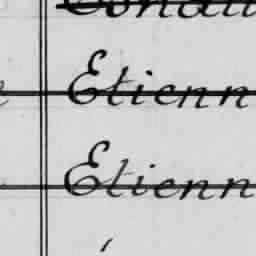 Etienn
Etienn